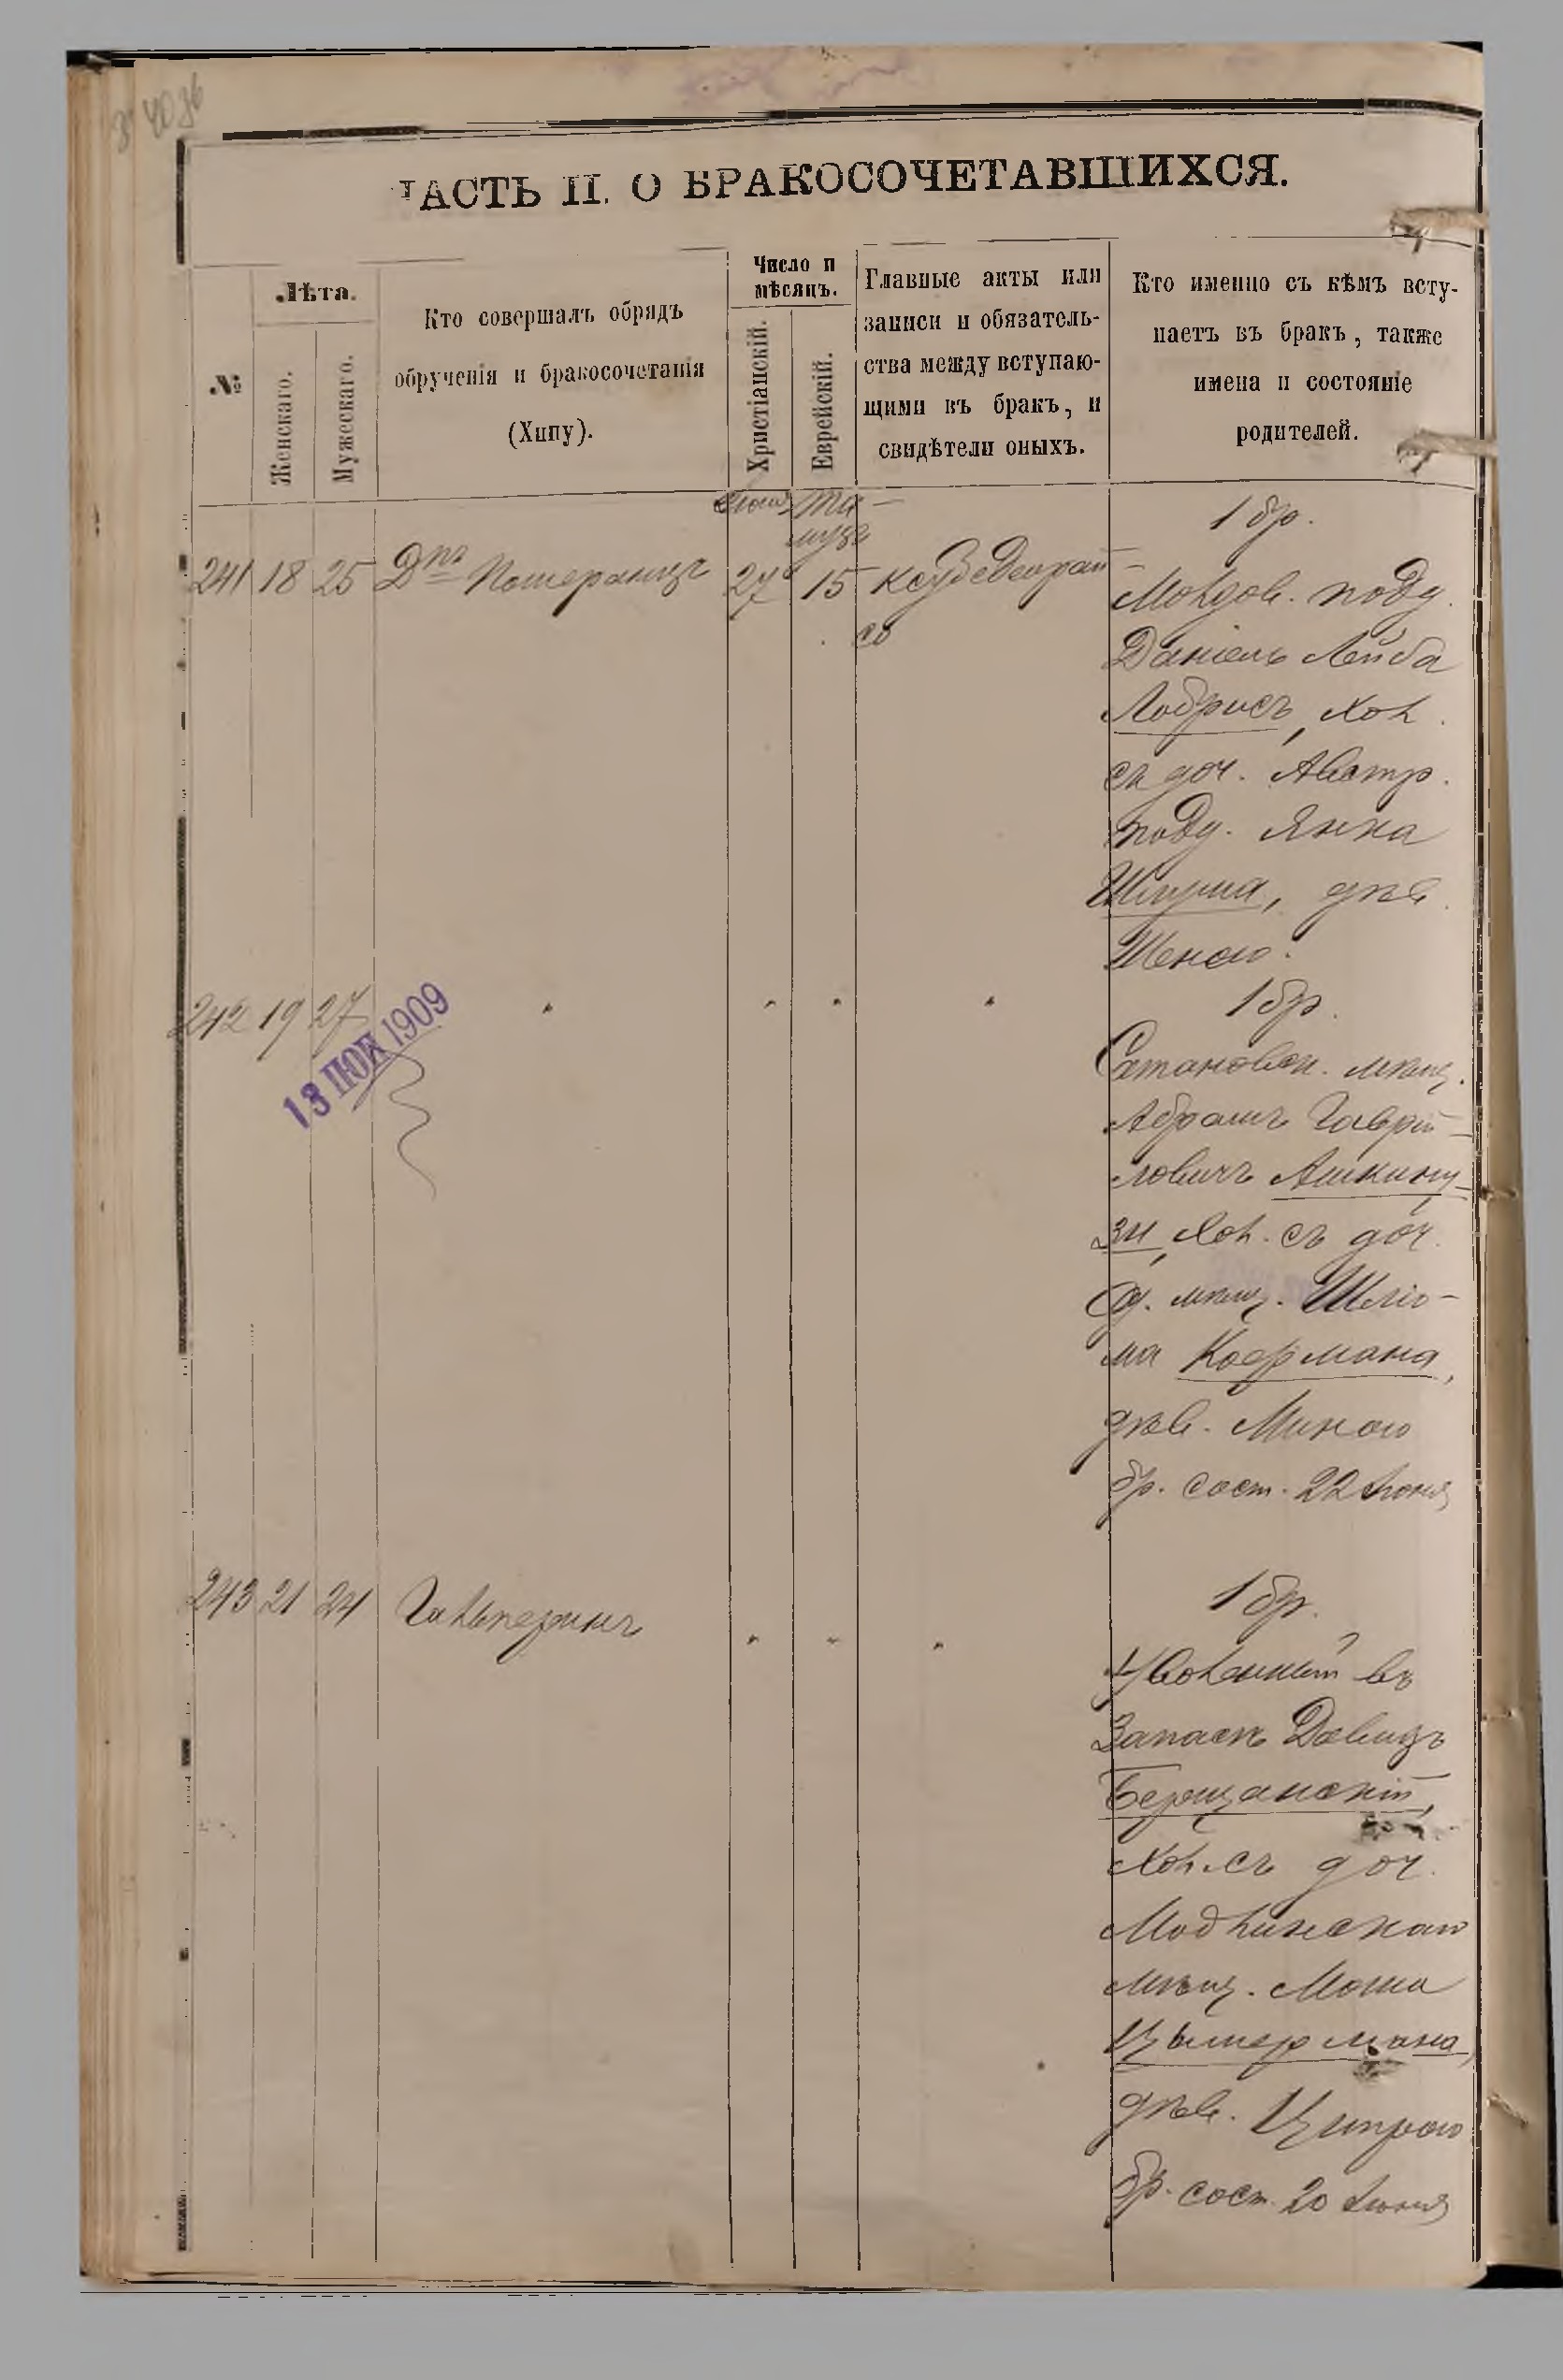 ЧАСТЬ II. О БРАКОСОЧЕТАВШИХСЯ.
№
Лѣта.
Женскаго.
Мужескаго.
Кто совершалъ обрядъ
обрученія и бракосочетанія
(Хипу).
Число и
мѣсяцъ.
Христіанскій.
Еврейскій.
Главные акты или
записи и обязатель-
ства между вступаю-
щими въ бракъ, и
свидѣтели оныхъ.
Кто именно съ кѣмъ всту-
паетъ въ бракъ, также
имена и состояніе
родителей.
Та-
музъ
1 бр.
241 18 25 Дръ Померанцъ 27 15
Молдов. подд.
Даніель Лейба
Лобрисъ, хол.
съ доч. Австр.
подд. Янка
дѣв.
Шенею.
242 19 27 " " " "
13 ІЮЛ 1909
1 бр.
Сатановск. мѣщ.
Абрамъ Гаврі-
ловичъ Ашкину-
зи, хол. съ доч.
Од. мѣщ. Шліо-
ма Коермана,
дѣв. Миною
бр. сост. 22 Іюня
243 21 24 Гальперинъ " " "
1 бр.
Уволенный въ
Запасъ Давидъ
Берщанскій,
хол. съ доч.
мѣщ. Мошка
Цымермана,
дѣв. Ципрою
бр. сост. 20 Іюня